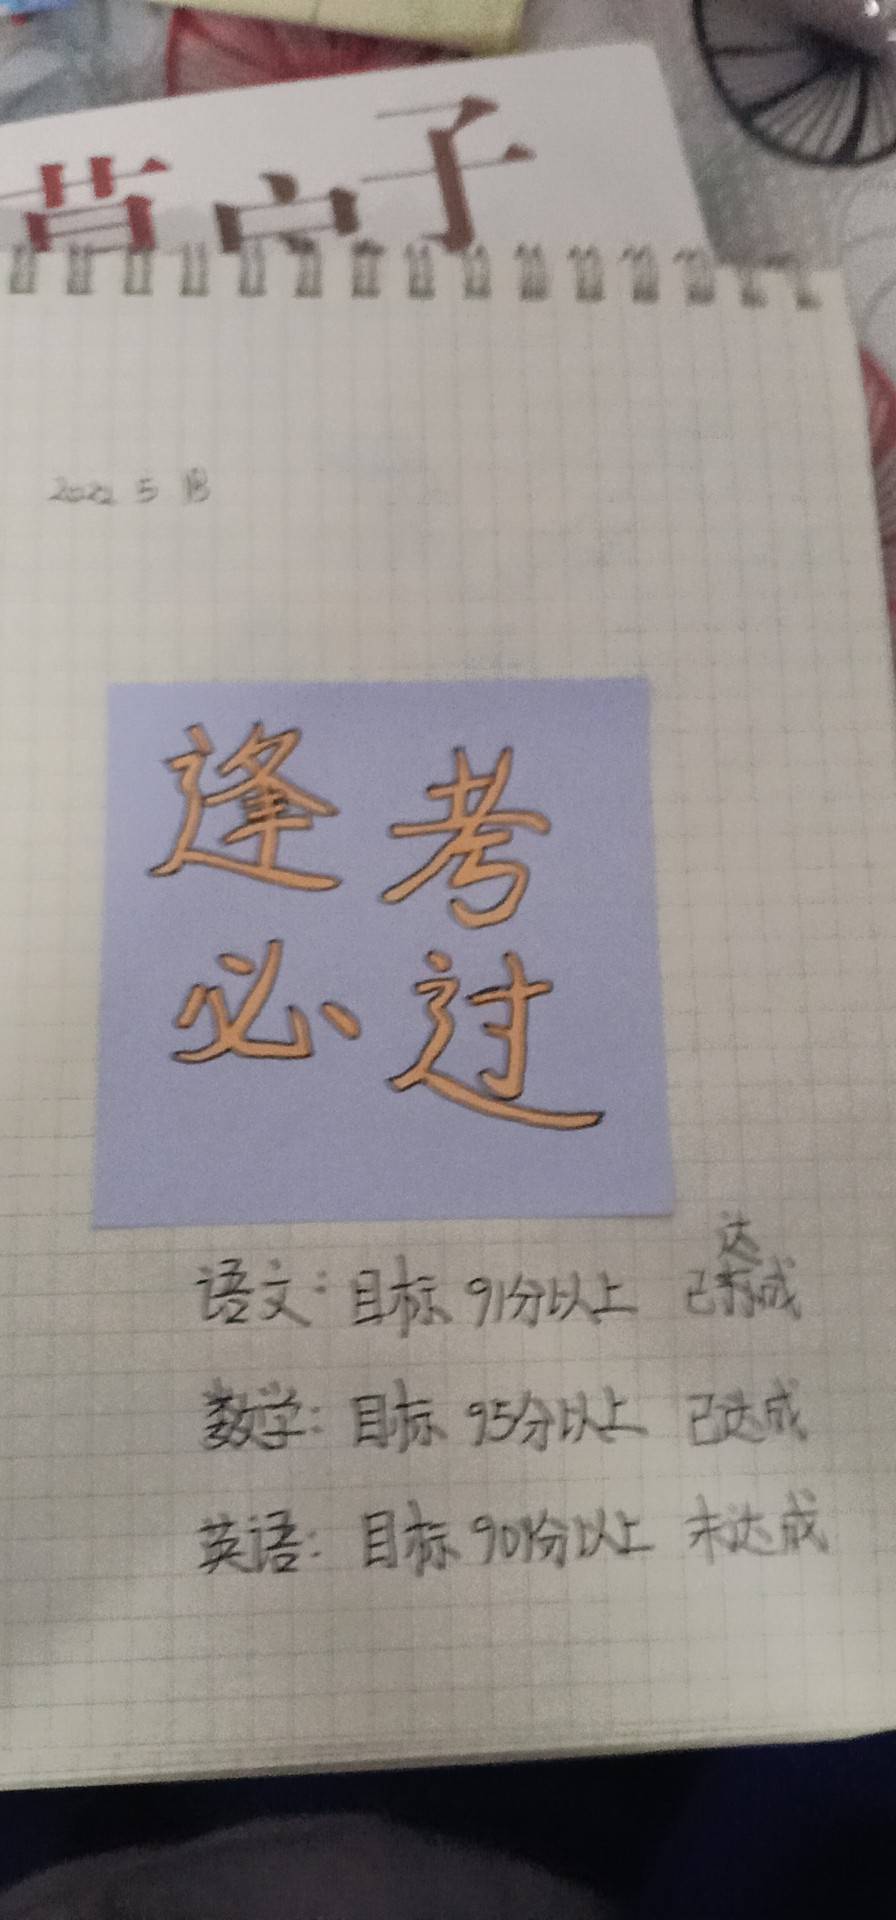 子
2022 5 18
逢考
必过
语文：目标 91分以上 已达成
数学：目标 95分以上 已达成
英语：目标 90分以上 未达成